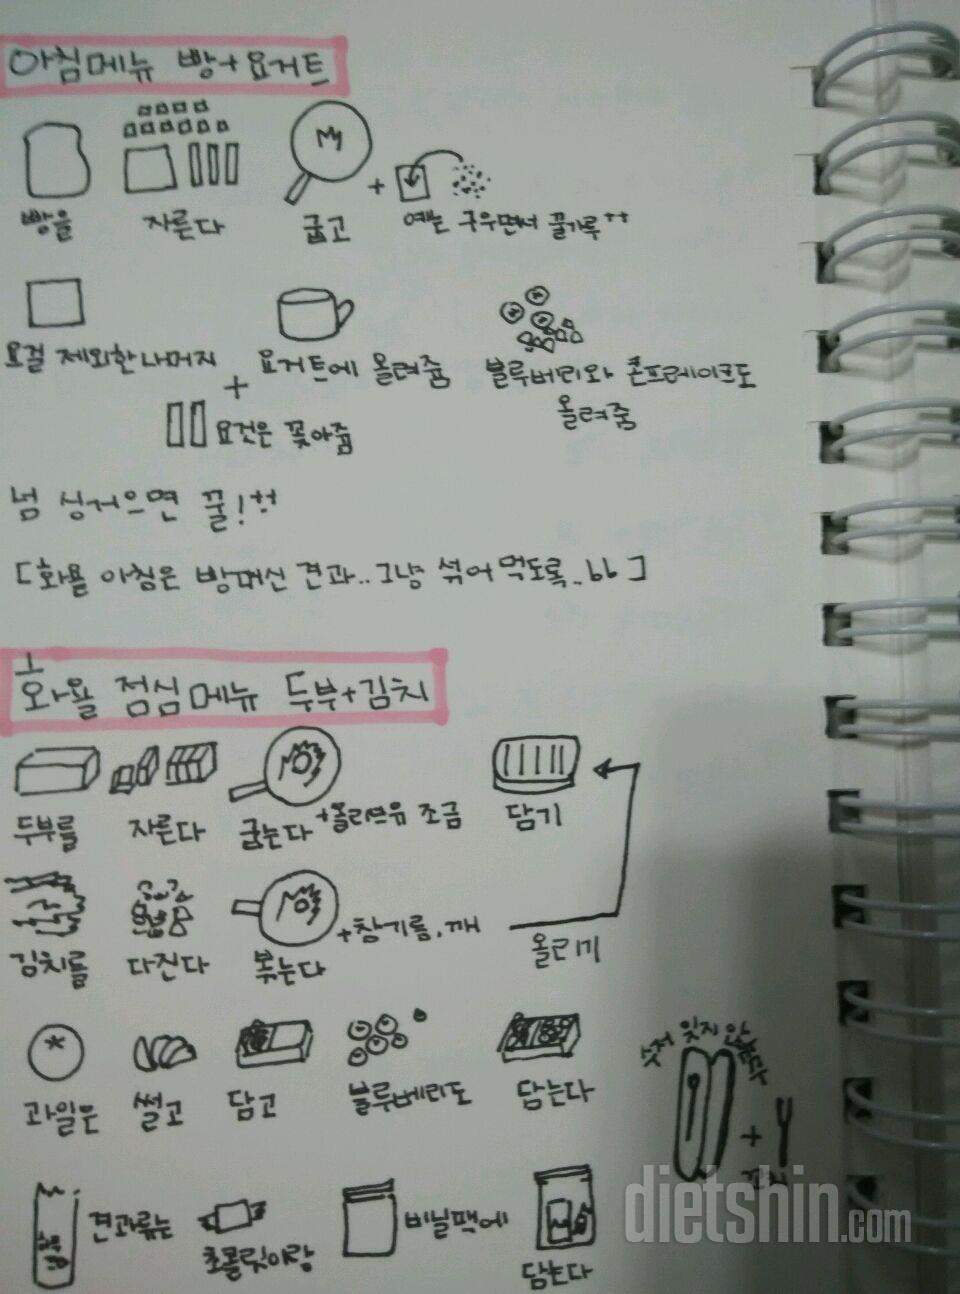 아침메뉴 빵+요거트
빵을 자른다 굽고 + 얘는 구우면서 꿀가루++
요걸 제외한 나머지 요거트에 올려줌 블루베리와 콘프레이크도
+ 올려줌
요것은 꽂아줌
넘 싱거으면 꿀!++
[화욜 아침은 빵대신 견과..그냥 섞어 먹도록..bb]
화욜 점심메뉴 두부+김치
두부를 자른다 굽는다 +올리브유 조금 담기
김치를 다진다 볶는다 +참기름.깨 올리기
과일은 썰고 담고 블루베리도 담는다
수저 잊지 않는다
+
견과류는 초콜릿이랑 비닐팩에 담는다
dietshin.com